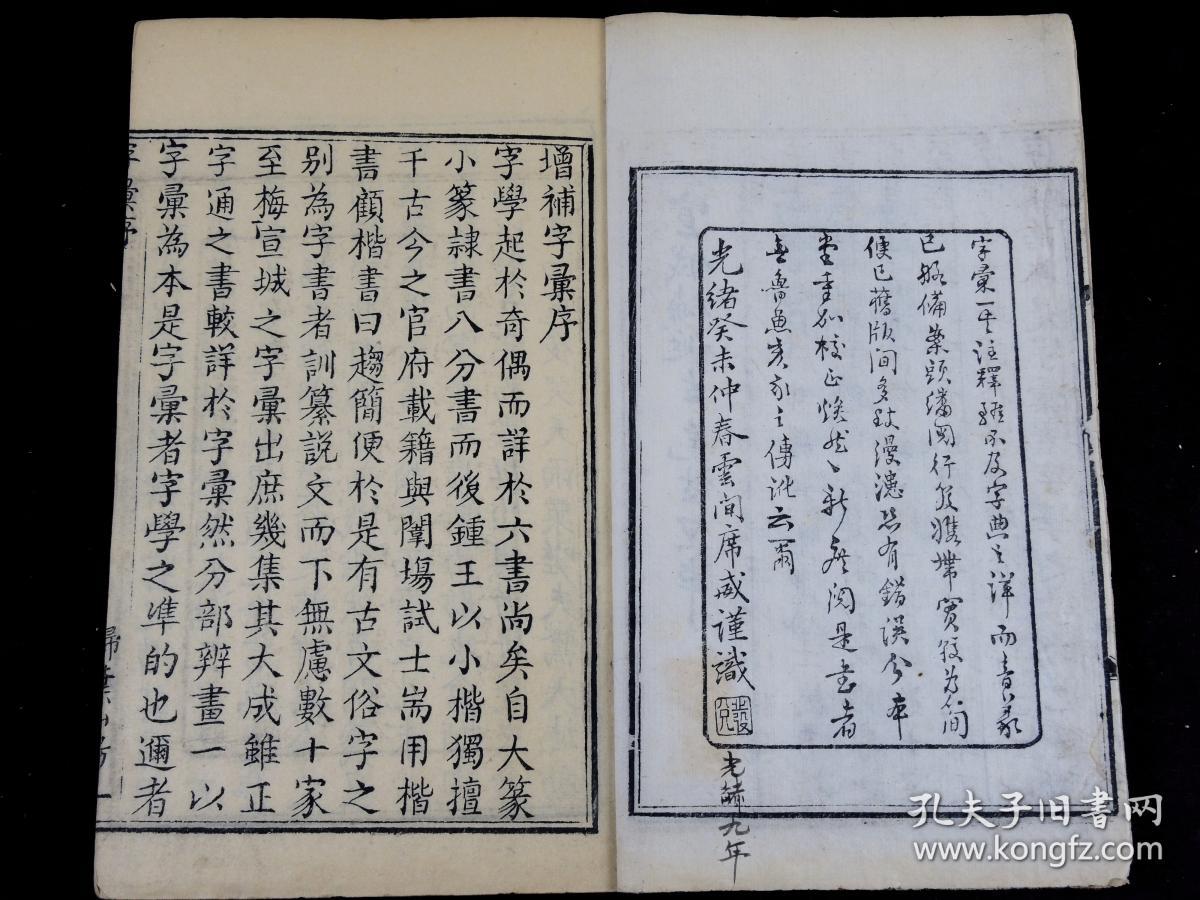 字彙一書註釋雖不及字典之詳而音義
已極備案頭繙閱行笈攜帶實較為簡
便已舊版間多致漫漶恐有錯誤今本
堂重加校正煥然一新庶閱是書者
無魯魚亥豕之傳訛云爾
光緒癸未仲春雲間席威謹識
光緒九年
增補字彙序
字學起於奇偶而詳於六書尚矣自大篆
小篆隷書八分書而後鍾王以小楷獨擅
千古今之官府載籍與闈塲試士耑用楷
書顧楷書曰趨簡便於是有古文俗字之
别為字書者訓纂説文而下無慮數十家
至梅宣城之字彙出庶幾集其大成雖正
字通之書較詳於字彙然分部辨畫一以
字彙為本是字彙者字學之準的也邇者
字彙序
一
孔夫子旧书网
www.kongfz.com